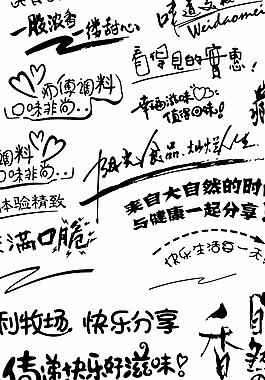 一股浓香 一缕甜心
味道
Weidaomei
看得见的实惠!
师傅调料
口味非尚..
幸福滋味
值得回味!
调料
口味非尚..
阳光食品.灿烂人生
体验精致
来自大自然的时
与健康一起分享
满口脆
快乐生活每一天
利牧场 快乐分享
传递快乐好滋味!
香